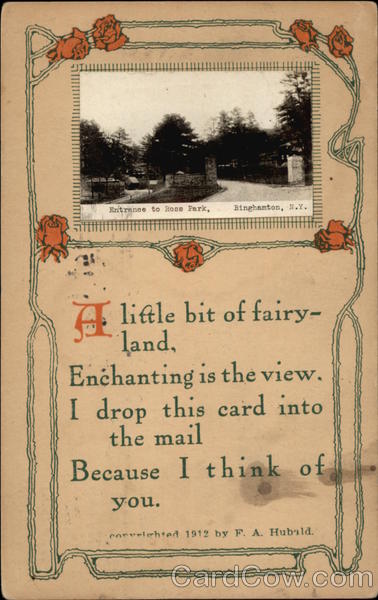 Entrance to Ross Park,    Binghamton, N.Y.
A little bit of fairy-
land,
Enchanting is the view.
I drop this card into
the mail
Because I think of
you.
copyrighted 1912 by F. A. Hubald.
CardCow.com